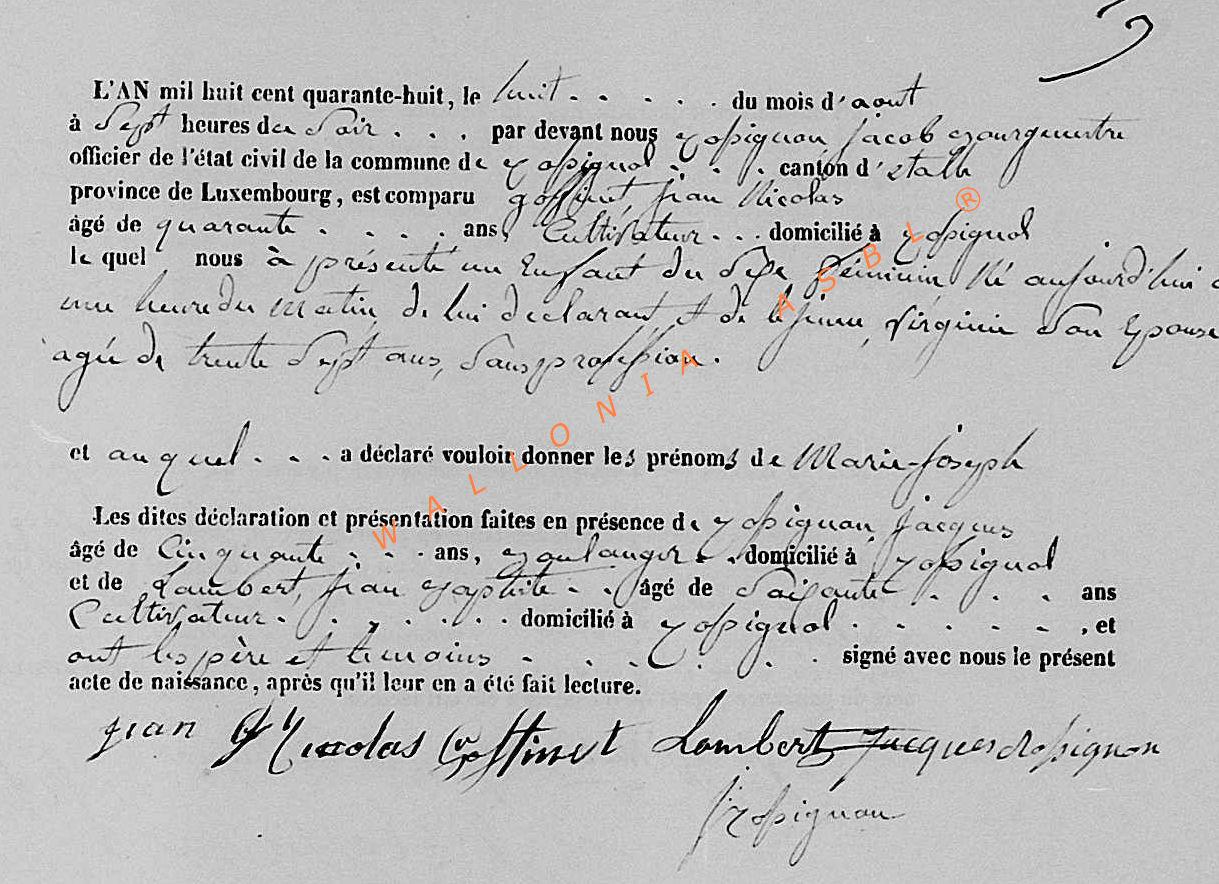 L'AN mil huit cent quarante-huit, le huit . . . . . du mois d'aout
à Sept heures du Soir . . . par devant nous Rossignon Jacob Bourgmestre
officier de l'état civil de la commune de Rossignol . . . canton d'etalle
province de Luxembourg, est comparu goffinet, jean Nicolas
âgé de quarante . . . . ans, Cultivateur . . . domicilié à Rossignol
le quel nous à présenté un Enfant du Sexe féminin, Né aujourd'hui à
une heure du Matin, de lui declarant et de Virginie Son Epouse
agée de trente Sept ans, Sans profession.
et auquel . . . a déclaré vouloir donner les prénoms de Marie-Joseph
Les dites déclaration et présentation faites en présence de Rossignon Jacques
âgé de Cinquante . . . ans, Boulanger . . domicilié à Rossignol
et de Lambert, jean Baptiste . . âgé de Soixante . . . ans
Cultivateur . . . . . . . domicilié à Rossignol . . . . . , et
ont les père et temoins . . . . . . signé avec nous le présent
acte de naissance, après qu'il leur en a été fait lecture.
jean Nicolas Goffinet Lambert Jacques Rossignon
J Rossignon
WALLONIA ASBL ®